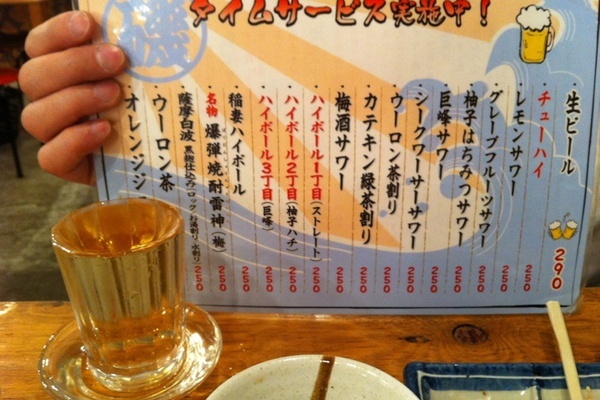 磯
タイムサービス実施中！
生ビール 290
チューハイ
・レモンサワー 250
・グレープフルーツサワー 250
・柚子はちみつサワー 250
・巨峰サワー 250
・シークヮーサーサワー 250
・ウーロン茶割り 250
・カテキン緑茶割り 250
・梅酒サワー 250
・ハイボール1丁目（ストレート） 250
・ハイボール2丁目（柚子ハチ） 250
・ハイボール3丁目（巨峰） 250
・稲妻ハイボール 250
・名物 爆弾焼酎雷神（梅） 250
・薩摩白波 黒麹仕込み（ロック・お湯割り・水割り） 250
・ウーロン茶
・オレンジジ